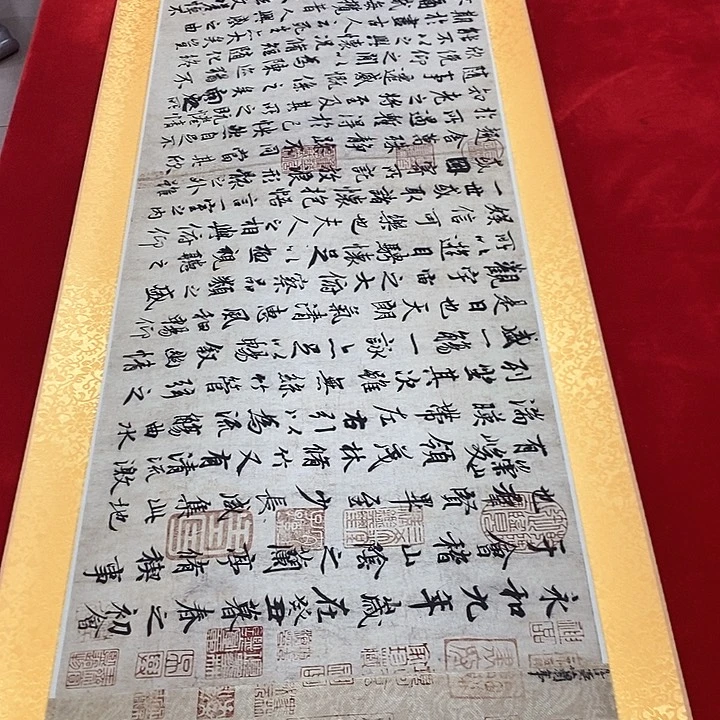 永和九年歲在癸丑暮春之初會
于會稽山陰之蘭亭脩稧事
也群賢畢至少長咸集此地
有崇山峻領茂林脩竹又有清流激
湍暎帶左右引以為流觴曲水
列坐其次雖無絲竹管弦之
盛一觴一詠亦足以暢敘幽情
是日也天朗氣清惠風和暢仰
觀宇宙之大俯察品類之盛
所以遊目騁懷足以極視聽之
娛信可樂也夫人之相與俯仰
一世或取諸懷抱悟言一室之內
或因寄所託放浪形骸之外雖
趣舍萬殊靜躁不同當其欣
於所遇蹔得於己怏然自足不
知老之將至及其所之既惓情
隨事遷感慨係之矣向之所
欣俛仰之閒以為陳迹猶不
能不以之興懷況脩短隨化終
期於盡古人云死生亦大矣豈